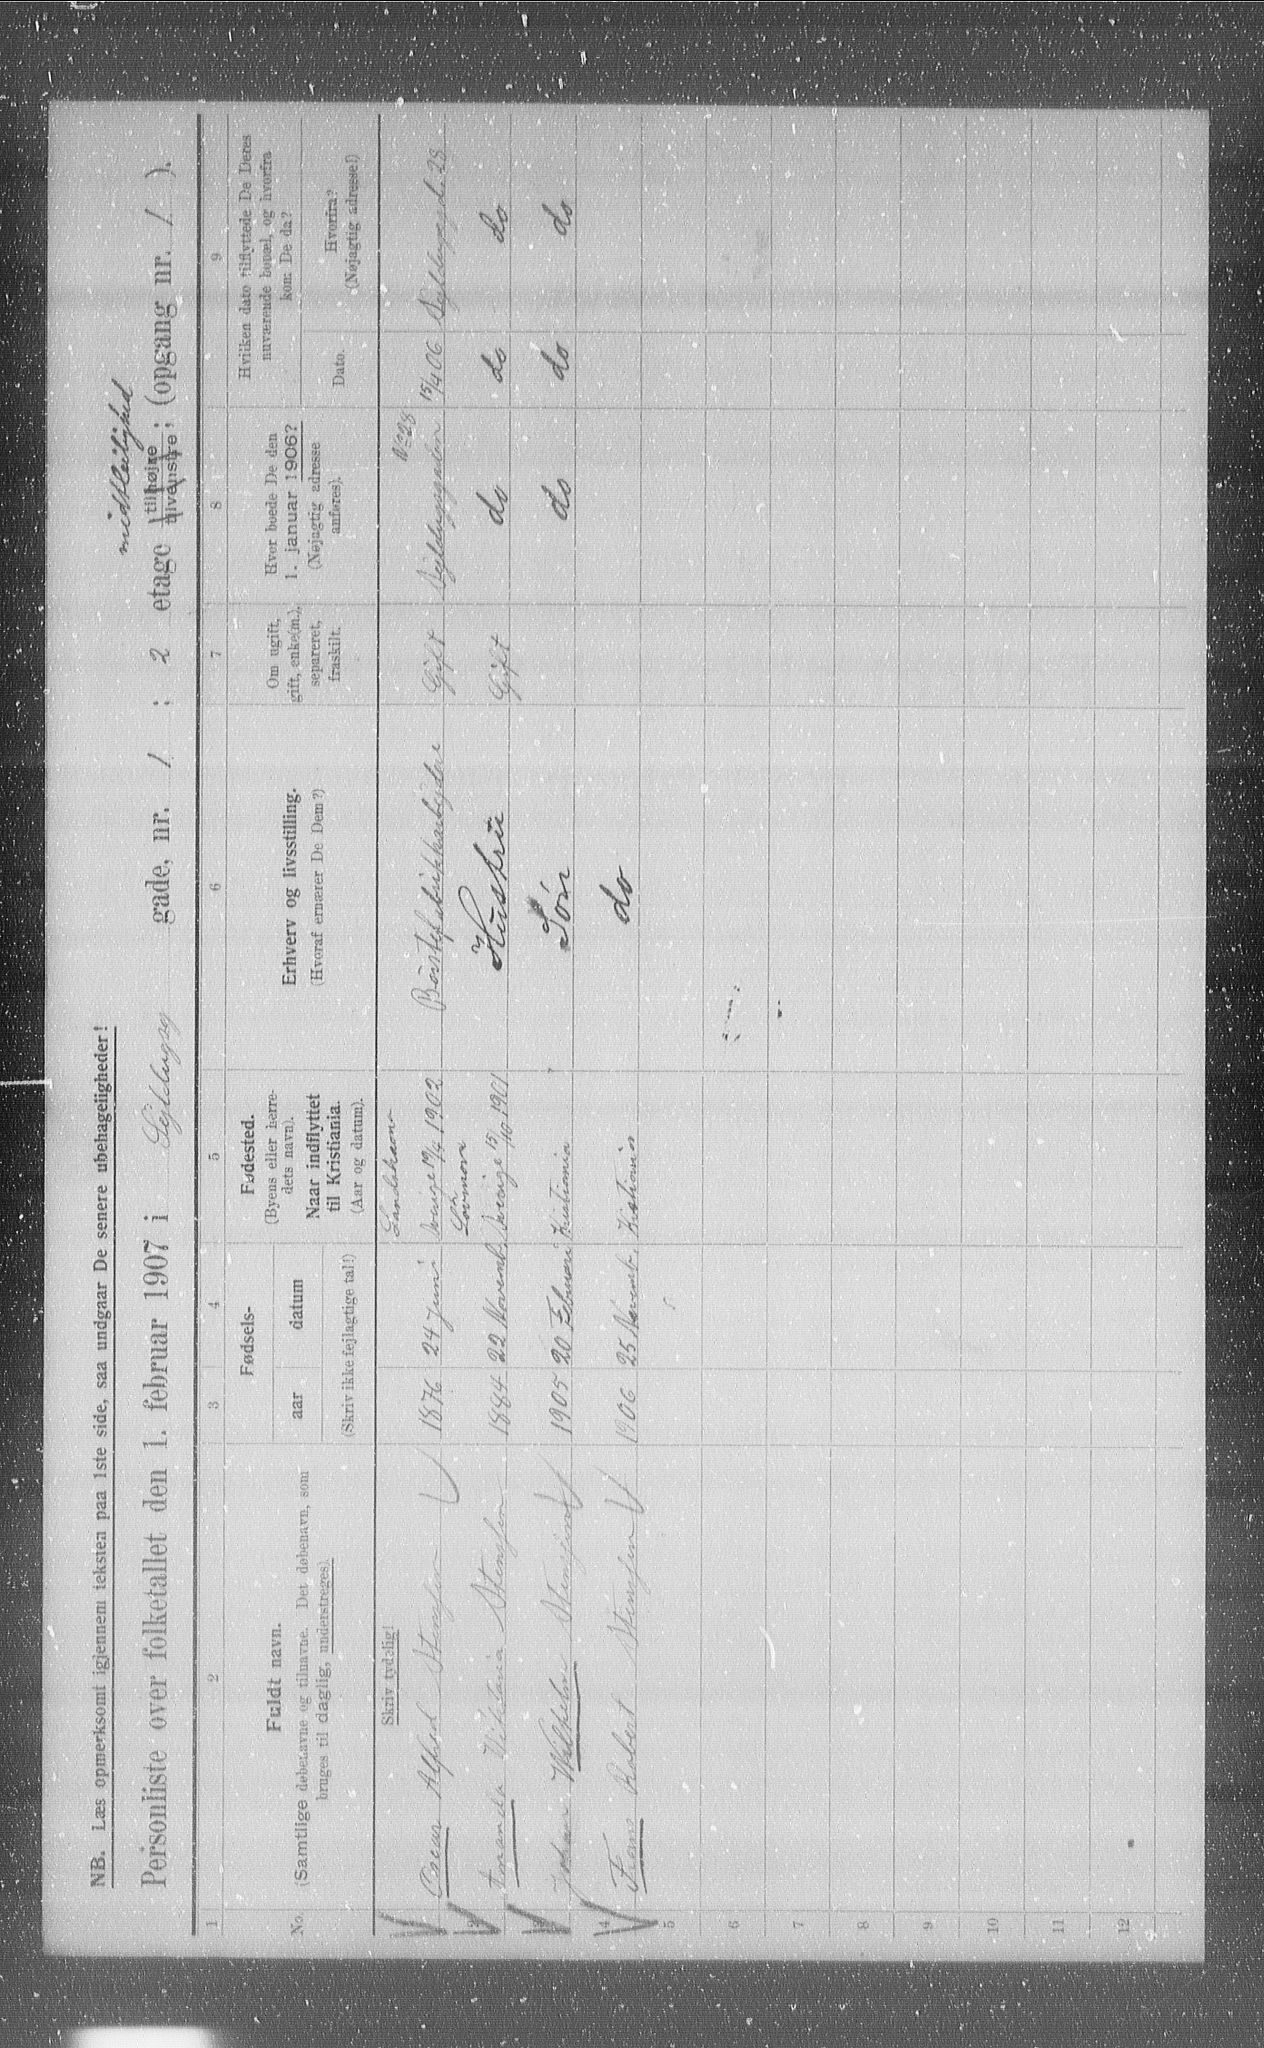 NB. Læs opmerksomt igjennem teksten paa 1ste side, saa undgaar De senere ubehageligheder!
midtleilighed
Personliste over folketallet den 1. februar 1907 i gade, nr. 1 ; 2 etage tilhøjre tilvenstre ; (opgang nr. 1 ).
1 2 3 4 5 6 7 8 9
No.
Fuldt navn.
(Samtlige døbenavne og tilnavne. Det døbenavn, som
bruges til daglig, understreges).
Fødsels-
aar datum
(Skriv ikke fejlagtige tal!)
Fødested.
(Byens eller herre-
dets navn).
Naar indflyttet
til Kristiania.
(Aar og datum).
Erhverv og livsstilling.
(Hvoraf ernærer De Dem?)
Om ugift,
gift, enke(m.),
separeret,
fraskilt.
Hvor boede De den
1. januar 1906?
(Nøjagtig adresse
anføres).
Hvilken dato tilflyttede De Deres
nuværende bopæl, og hvorfra
kom De da?
Dato.
Hvorfra?
(Nøjagtig adresse!)
Skriv tydelig!
Landskrona No 28
1 Oscar Alfred Stensen 1876 24 Juni Sverige 1902 Børstefabrikkarbeider Gift 15/4 06 28
2 Amanda Viktoria Stensen 1884 22 Novemb. Sverige 15/10 1901 Hustru Gift do do do
3 Johan Wilhelm Stensen 1905 20 Februari Kristiania Sön do do do
4 Frans Robert Stensen 1906 25 Novemb. Kristiania do
5
6
7
8
9
10
11
12